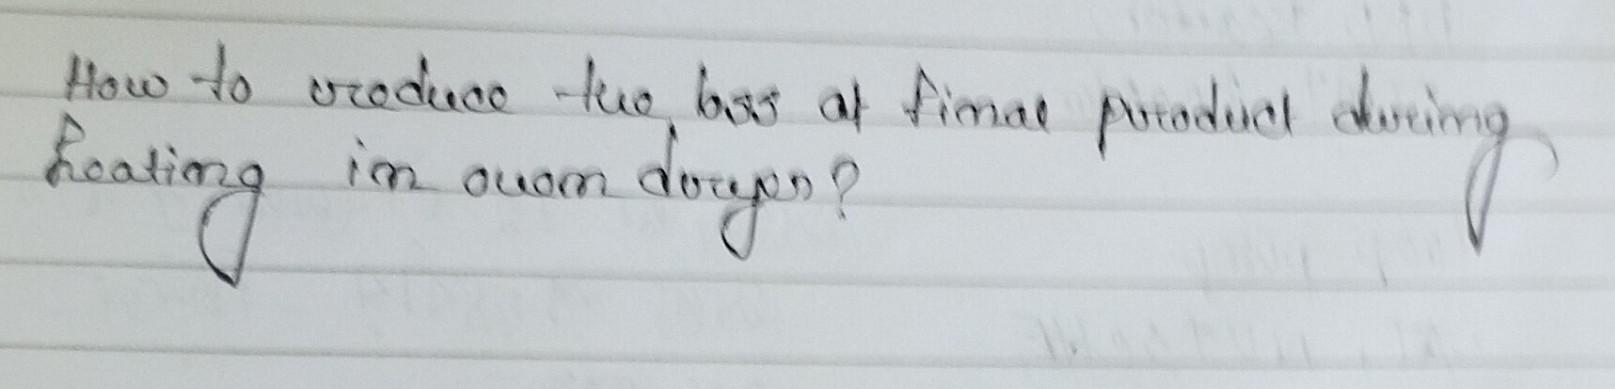 How to reduce the loss of final product during
heating in oven dryer?